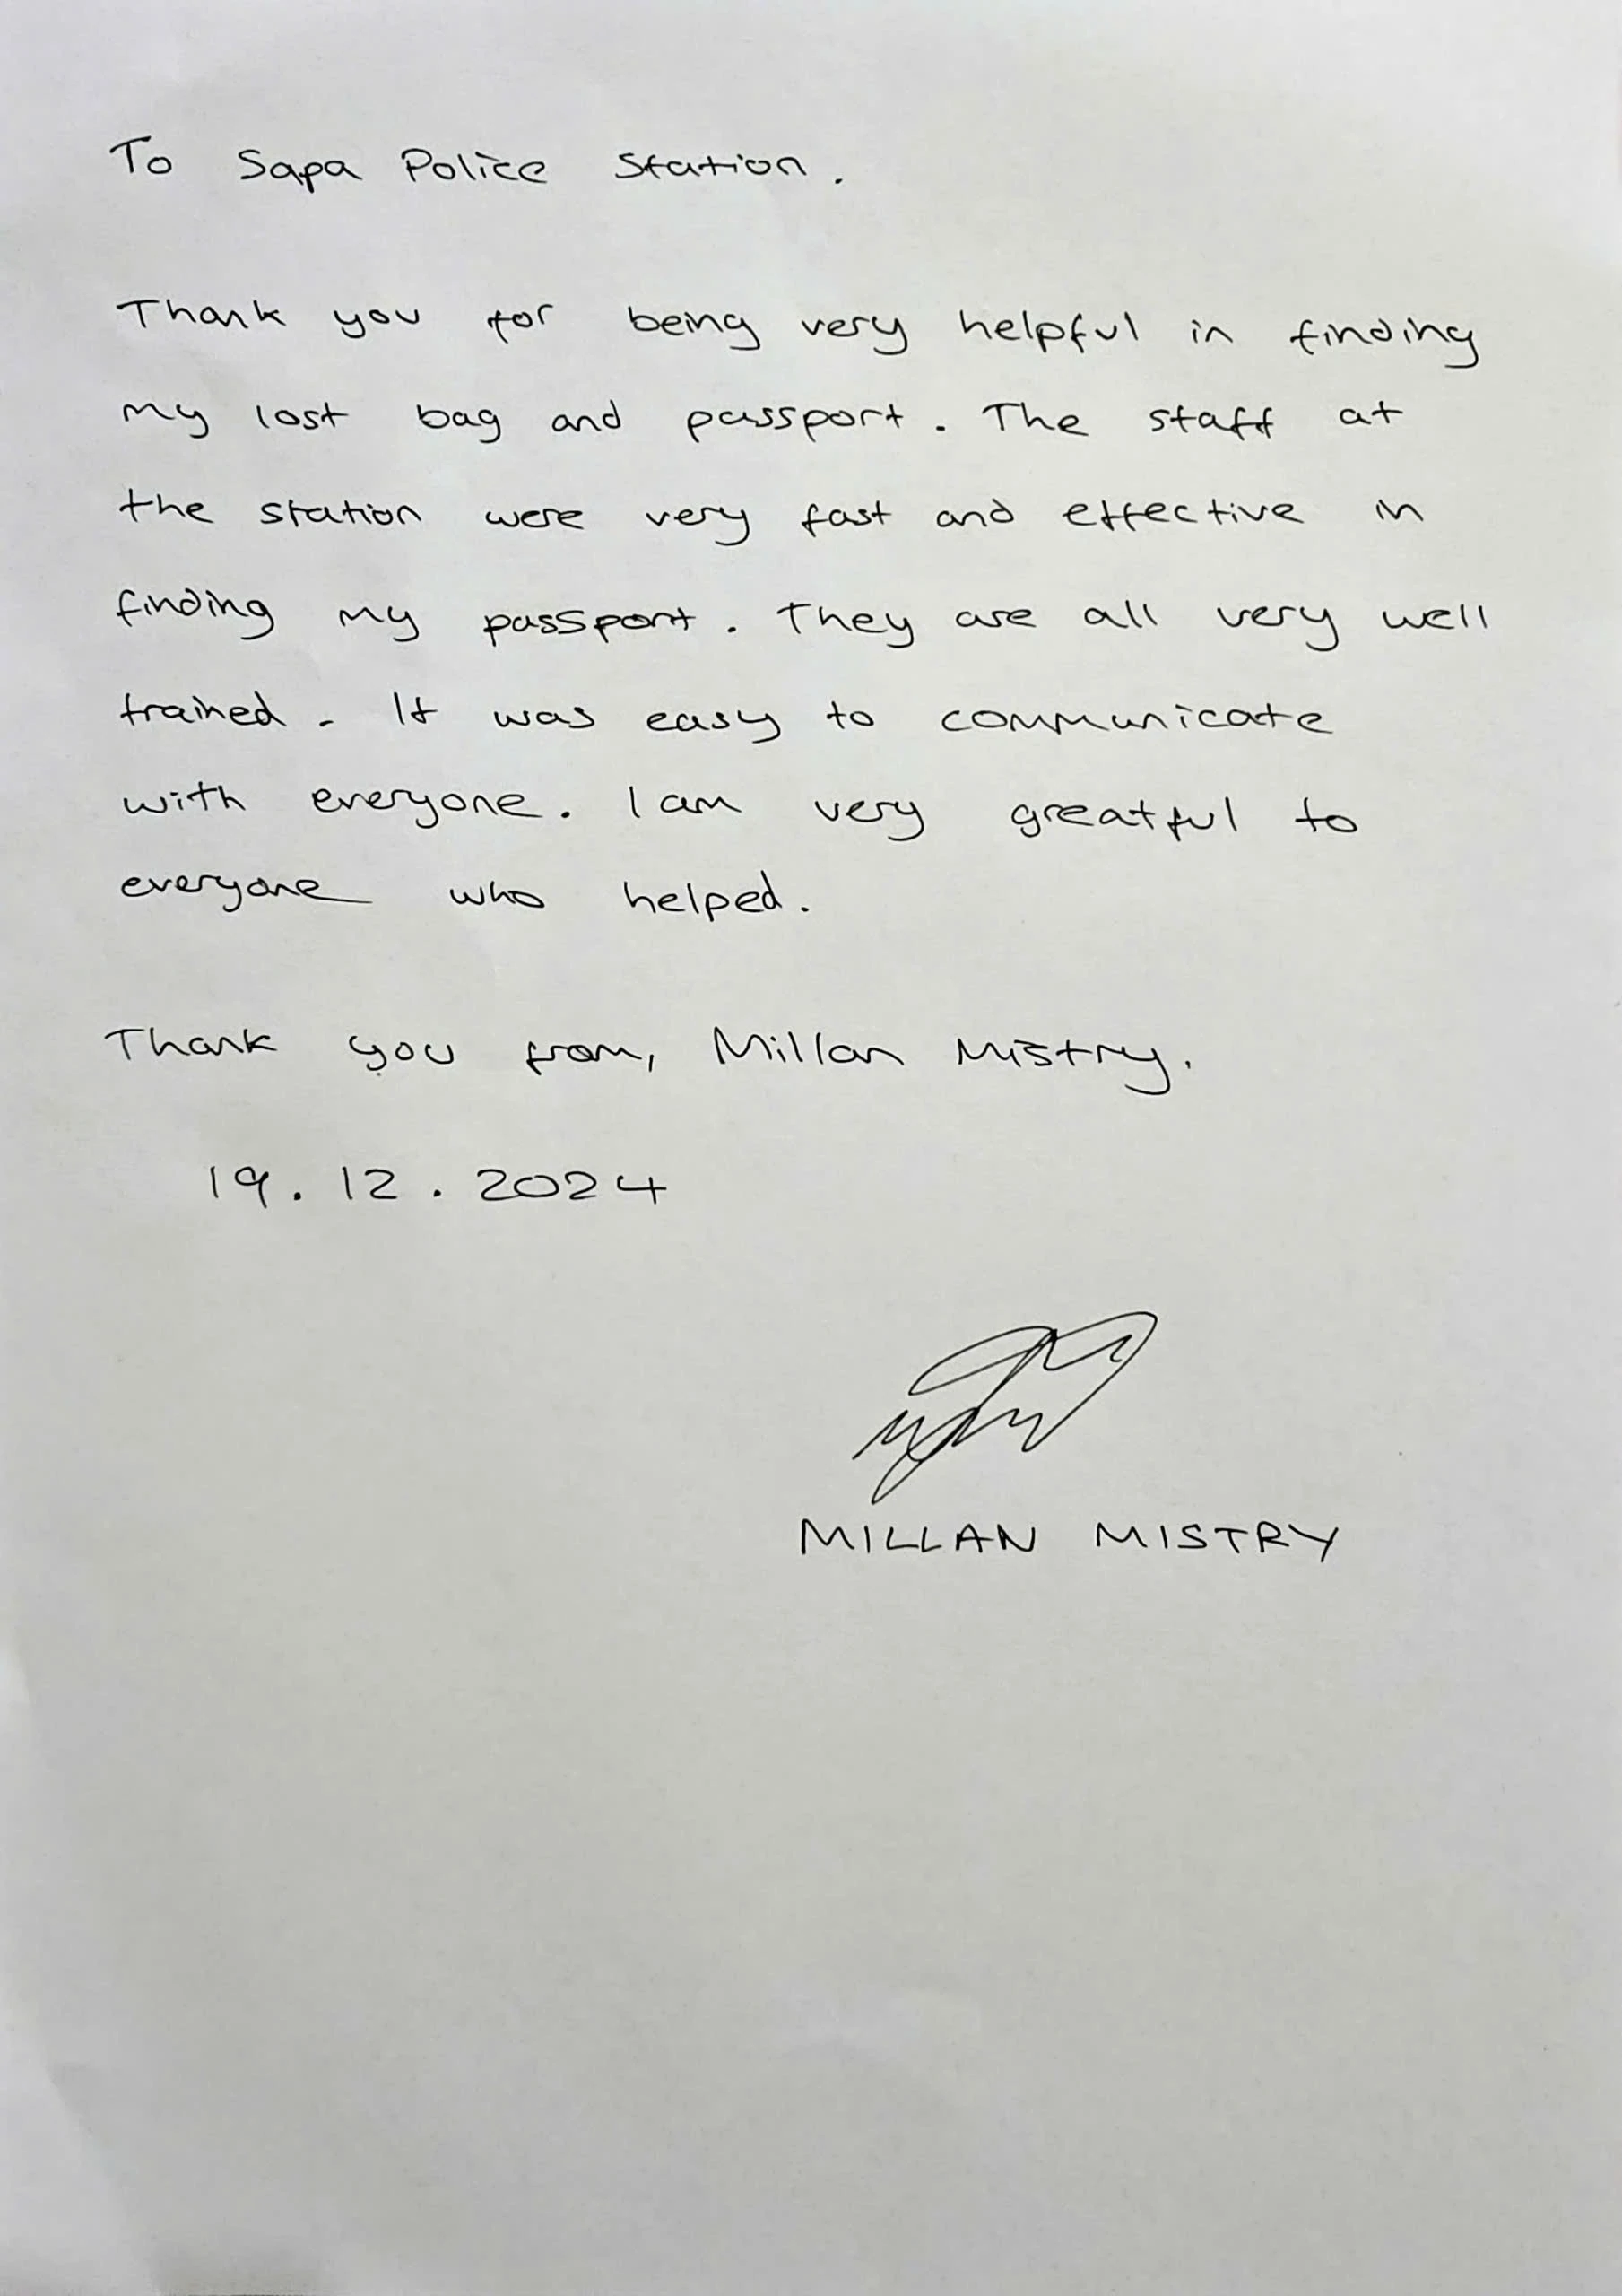 To Sapa Police Station.
Thank you for being very helpful in finding
my lost bag and passport. The staff at
the station were very fast and effective in
finding my passport. They are all very well
trained. It was easy to communicate
with everyone. I am very greatful to
everyone who helped.
Thank you from, Millan Mistry.
19.12.2024
MILLAN MISTRY